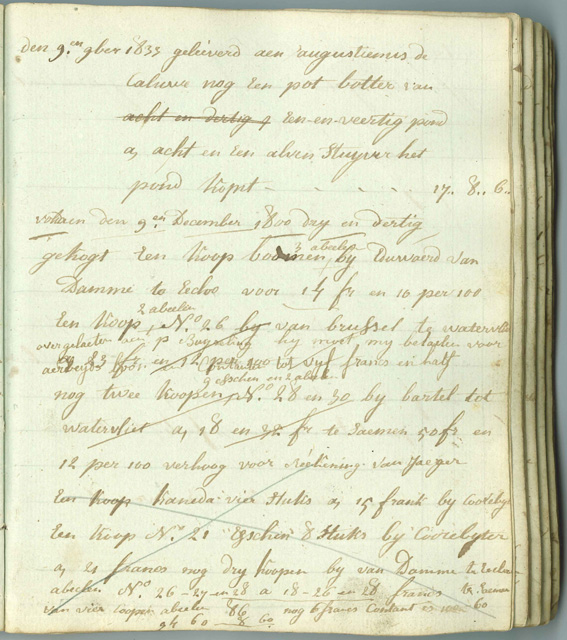 den 9.en 9ber 1833 geleverd aen augustienus de
Caluwe nog Een pot botter van
acht en dertig Een-en-veertig pond
a, acht en Een alven Stuyver het
pond komt - - - - - 17.. 8.. 6..
den 9.en December 1800 dry en dertig
gekogt Een koop boomen 3 abeelen by Eduwaerd van
Damme te Eecloo voor 14 fr en 10 per 100
2 abeelen
Een koop, N.o 26 by van brussel te watervliet
overgelaeten aen p hy moet my betaelen voor
23 fr en 12 per 100 tot vyf francs en half
9 esschen en 2 abeelen
nog twee koopen N.o 28 en 30 by bartel tot
watervliet a, 18 en 32 fr te saemen 50 fr en
12 per 100 verhoog voor Reekening van Jaeger
Een koop kaneda vier stuks a, 15 frank by Coorebyter
Een koop N.o 21 Esschen 8 stuks by Coorebyter
a, 21 francs nog dry koopen by van Damme te Eecloo
abeelen N.o 26-27-en 28 a 18-26 en 28 francs te saemen
van vier coopen abeelen 86 nog 6 francs Contant is 60
94 60 8 60